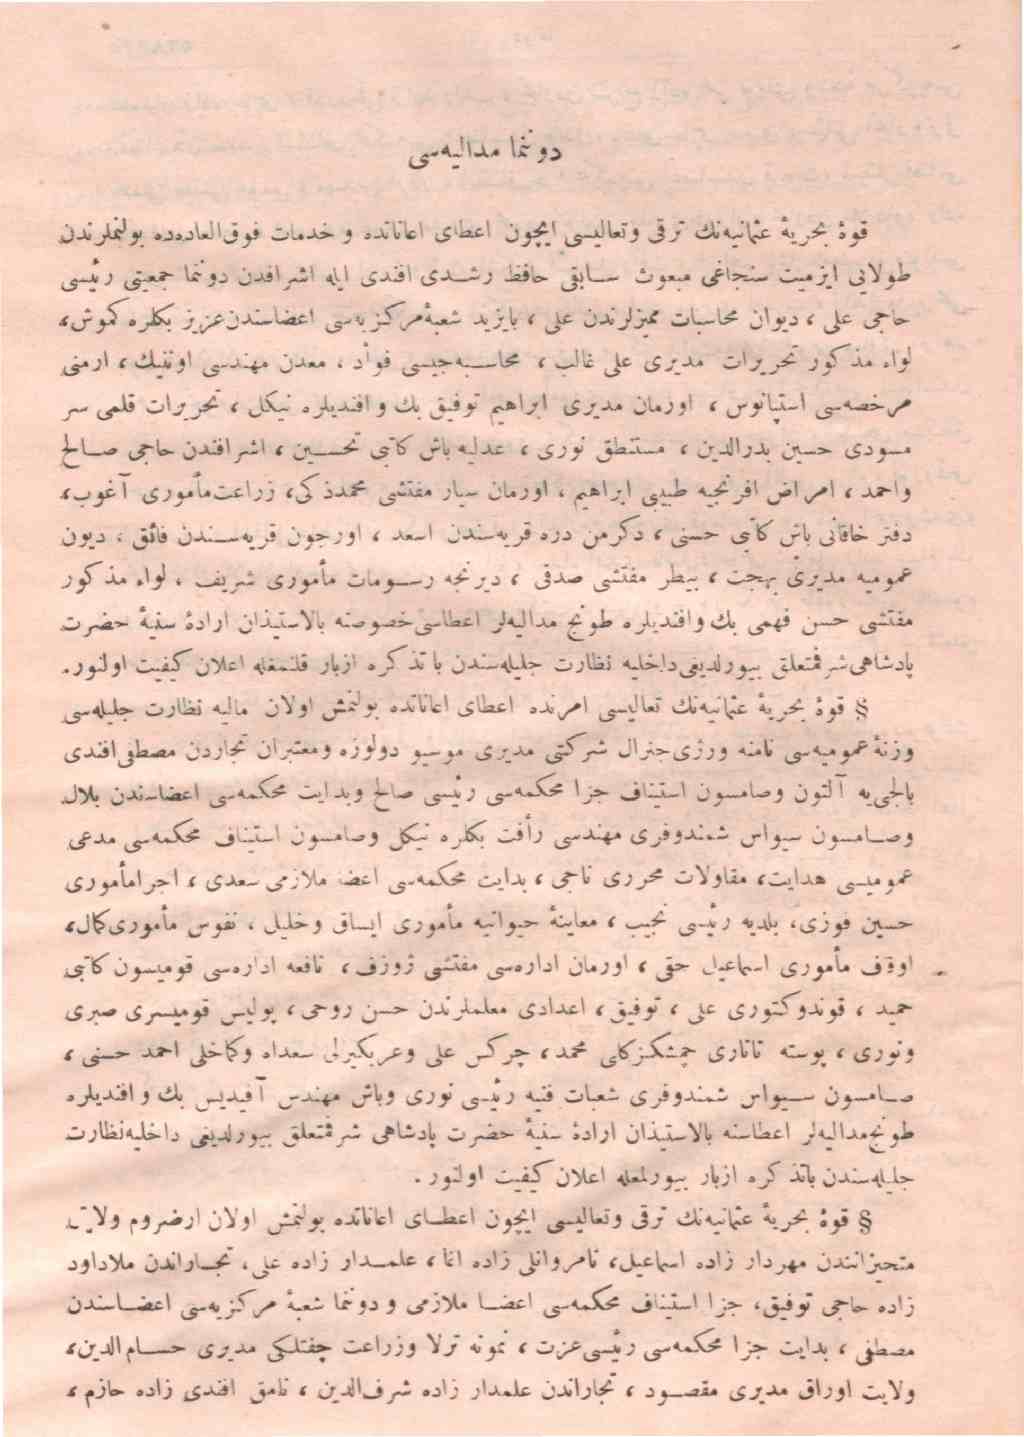 دوننما مداليه‌سی
قوهٔ بحریهٔ عثمانیه‌نك ترقی وتعالیسی ایچون اعطای اعاناتده و خدمات فوق‌العاده‌ده بولنملرندن
طولایی ازمیت سنجاغی مبعوث سابقی حافظ رشدی افندی ایله اشرافدن دوننما جمعیتی رئیسی
حاجی علی ، دیوان محاسبات ممیزلرندن علی ، بایزید شعبهٔ مرکزیه‌سی اعضاسندن عزیز بكلره كموش،
لواء مذكور تحریرات مدیری علی غالب ، محاسبه‌جیسی فواد ، معدن مهندسی اوتنیك ، ارمنی
مرخصه‌سی استپانوس ، اورمان مدیری ابراهیم توفیق بك و افندیلره نیكل ، تحریرات قلمی سر
مسودی حسین بدرالدین ، مستنطق نوری ، عدلیه باش كاتبی تحسین ، اشرافدن حاجی صالح
واحمد ، امراض افرنجیه طبیبی ابراهیم ، اورمان سیار مفتشی محمدذكی، زراعت‌مأموری آغوب،
دفتر خاقانی باش كاتبی حسنی ، دكرمن دره قریه‌سندن اسعد ، اورجون قریه‌سندن فائق ، دیون
عمومیه مدیری بهجت ، بیطر مفتشی صدقی ، دیرنجه رسومات مأموری شریف ، لواء مذكور
مفتشی حسن فهمی بك وافندیلره طونج مدالیه‌لر اعطاسی‌خصوصنه بالاستیذان ارادهٔ سنیهٔ حضرت
پادشاهی‌شرفتعلق بیورلدیغی‌داخلیه نظارت جلیله‌سندن با تذكره ازبار قلنمغله اعلان كیفیت اولنور.
§ قوهٔ بحریهٔ عثمانیه‌نك تعالیسی امرنده اعطای اعاناتده بولنمش اولان مالیه نظارت جلیله‌سی
وزنهٔ عمومیه‌سی نامنه ورژی‌جنرال شركتی مدیری موسیو دولوزه ومعتبران تجاردن مصطفی‌افندی
بالجی‌یه آلتون وصامسون استیناف جزا محكمه‌سی رئیسی صالح وبدایت محكمه‌سی اعضاسندن بلال
وصامسون سیواس شمندوفری مهندسی رأفت بكلره نیكل وصامسون استیناف محكمه‌سی مدعی
عمومیسی هدایت، مقاولات محرری ناجی ، بدایت محكمه‌سی اعضا ملازمی سعدی ، اجرامأموری
حسین فوزی، بلدیه رئیسی نجیب ، معاینهٔ حیوانیه مأموری ایساق وخلیل ، نفوس مأموری‌كمال،
اوقاف مأموری اسماعیل حقی ، اورمان اداره‌سی مفتشی ژوزف، نافعه اداره‌سی قومیسون كاتبی
حمید ، قوندوكتوری علی ، توفیق ، اعدادی معلملرندن حسن روحی ، پولیس قومیسری صبری
ونوری ، پوسته تاتاری چمشكزكلی محمد ، چركس علی وعربكیرلی سعداه وكماخلی احمد حسنی ،
صامسون سیواس شمندوفری شعبات فنیه رئیسی نوری وباش مهندس آفیدیس بك و افندیلره
طونج‌مدالیه‌لر اعطاسنه بالاستیذان ارادهٔ سنیهٔ حضرت پادشاهی شرفتعلق بیورلدیغی داخلیه‌نظارت
جلیله‌سندن باتذكره ازبار بیورلمغله اعلان كیفیت اولنور .
§ قوهٔ بحریهٔ عثمانیه‌نك ترقی وتعالیسی ایچون اعطای اعاناتده بولنمش اولان ارضروم ولایتی
متحیزانندن مهردار زاده اسماعیل، نامروانلی زاده اغا ، علمدار زاده علی، تجاراندن ملاداود
زاده حاجی توفیق، جزا استیناف محكمه‌سی اعضا ملازمی و دوننما شعبهٔ مركزیه‌سی اعضاسندن
مصطفی ، بدایت جزا محكمه‌سی رئیسی‌عزت ، نمونه ترلا وزراعت چفتلكی مدیری حسام‌الدین،
ولایت اوراق مدیری مقصود ، تجاراندن علمدار زاده شرف‌الدین ، نامق افندی زاده حازم ،